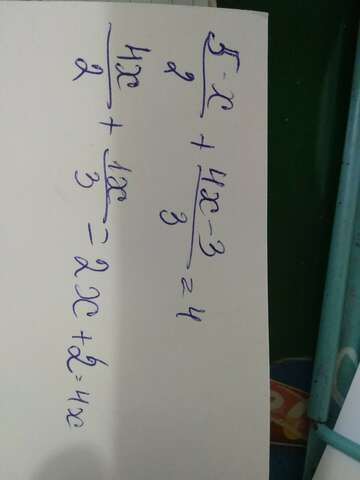 5-x/2 + 4x-3/3 = 4
4x/2 + 1x/3 = 2x+2=4x